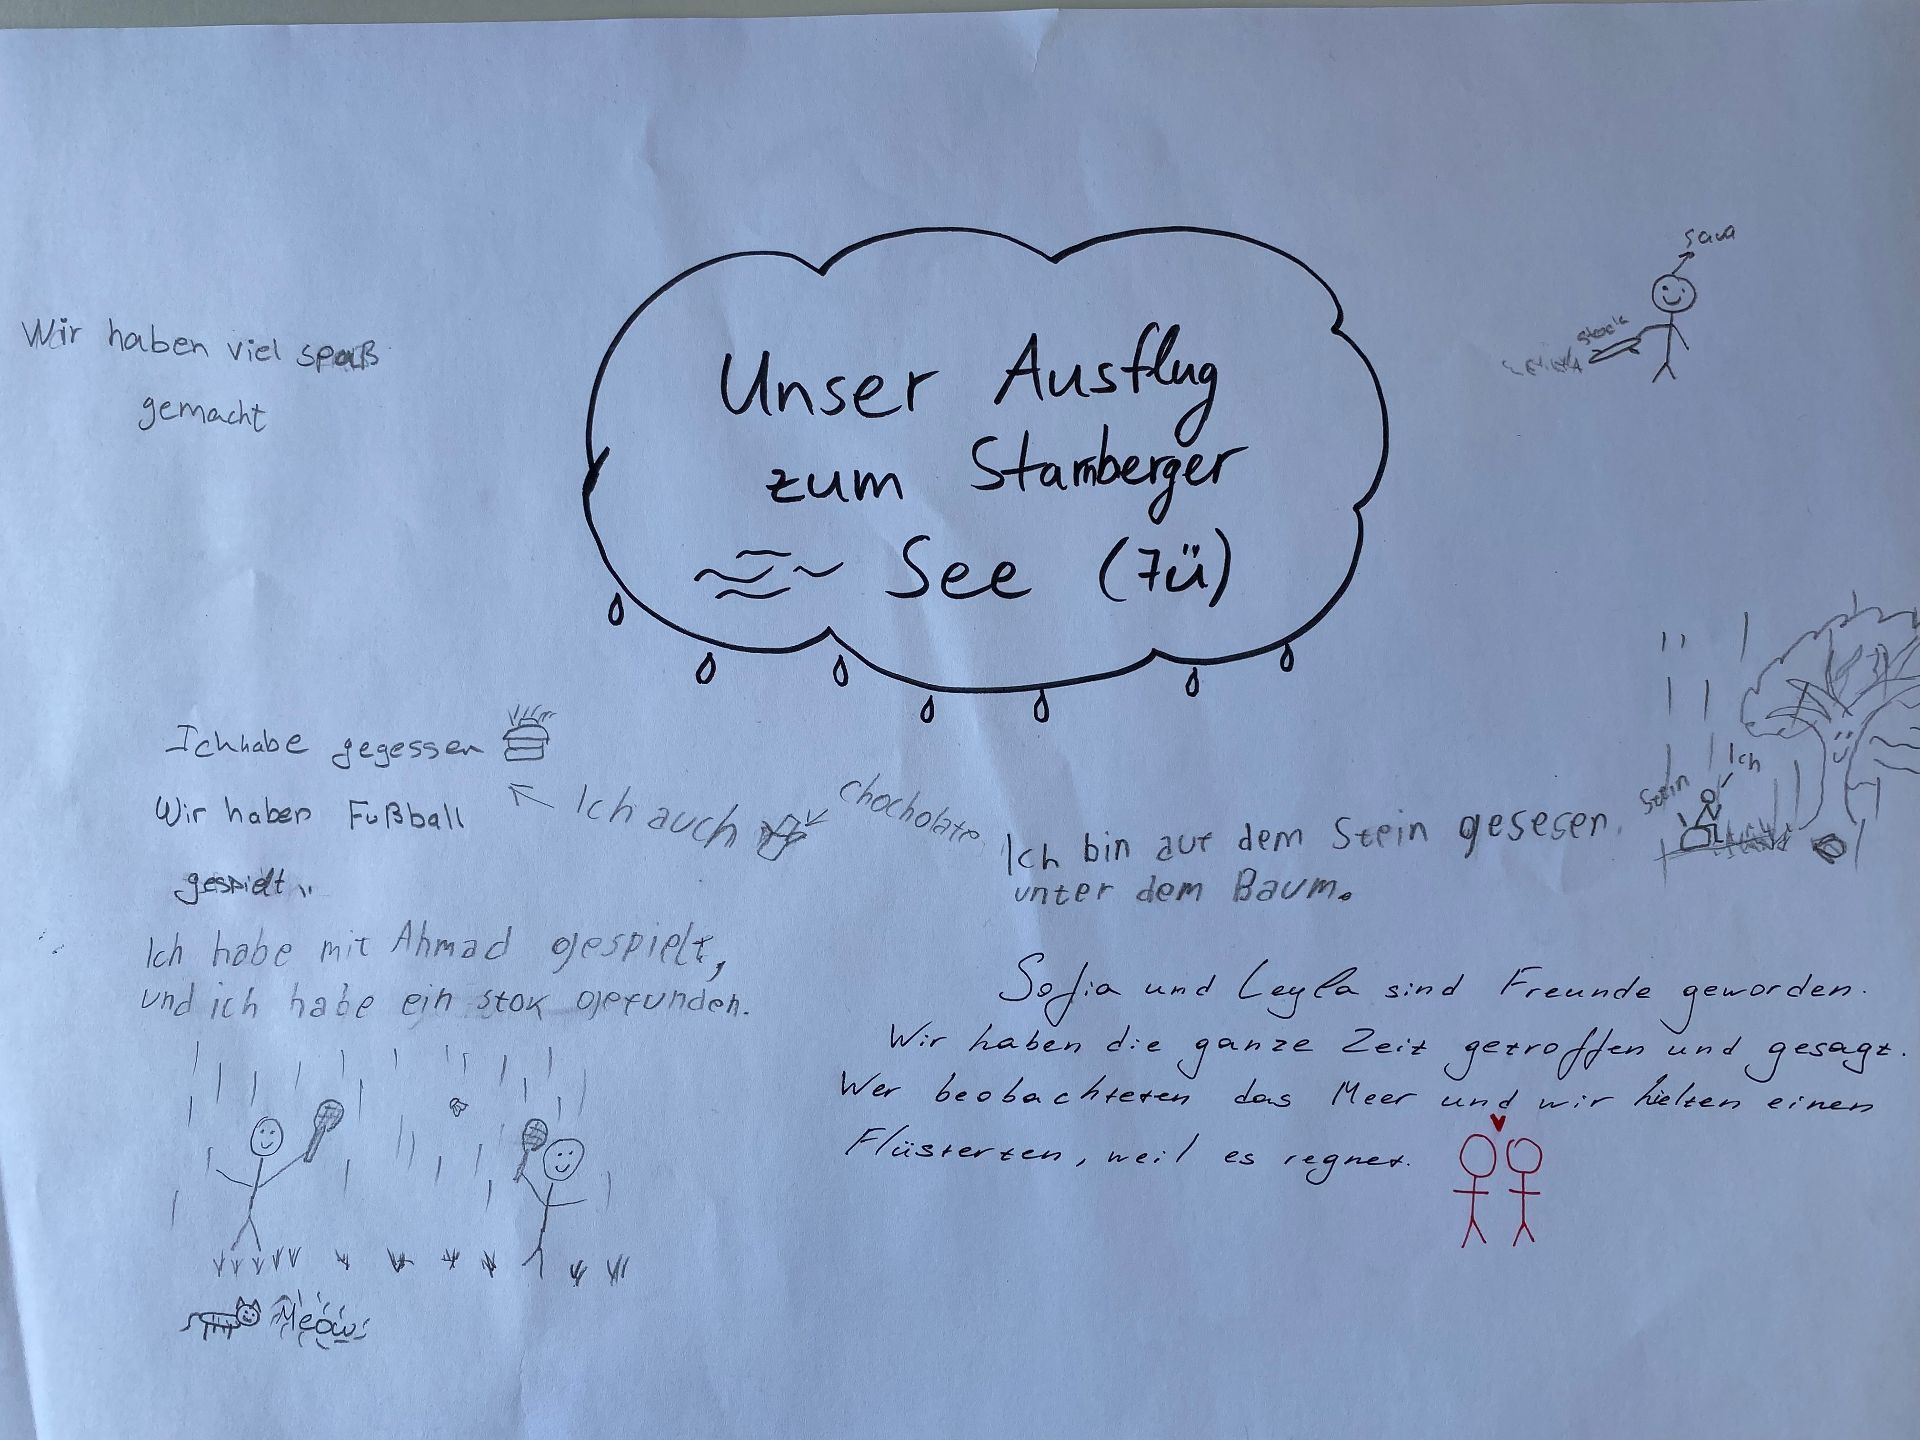 Sava
Stock
Wir haben viel spaß
gemacht
Unser Ausflug
zum Starnberger
See (7ü)
Ich habe gegessen
Wir haben Fußball
gespielt
Ich auch
chocholate
Ich
Stein
Ich bin auf dem Stein gesesen.
unter dem Baum.
Ich habe mit Ahmad gespielt,
und ich habe ein stok gefunden.
Sofia und Leyla sind Freunde geworden.
Wir haben die ganze Zeit getroffen und gesagt.
Wer beobachteten das Meer und wir hielten einen
Flüsterten, weil es regnet.
Meow